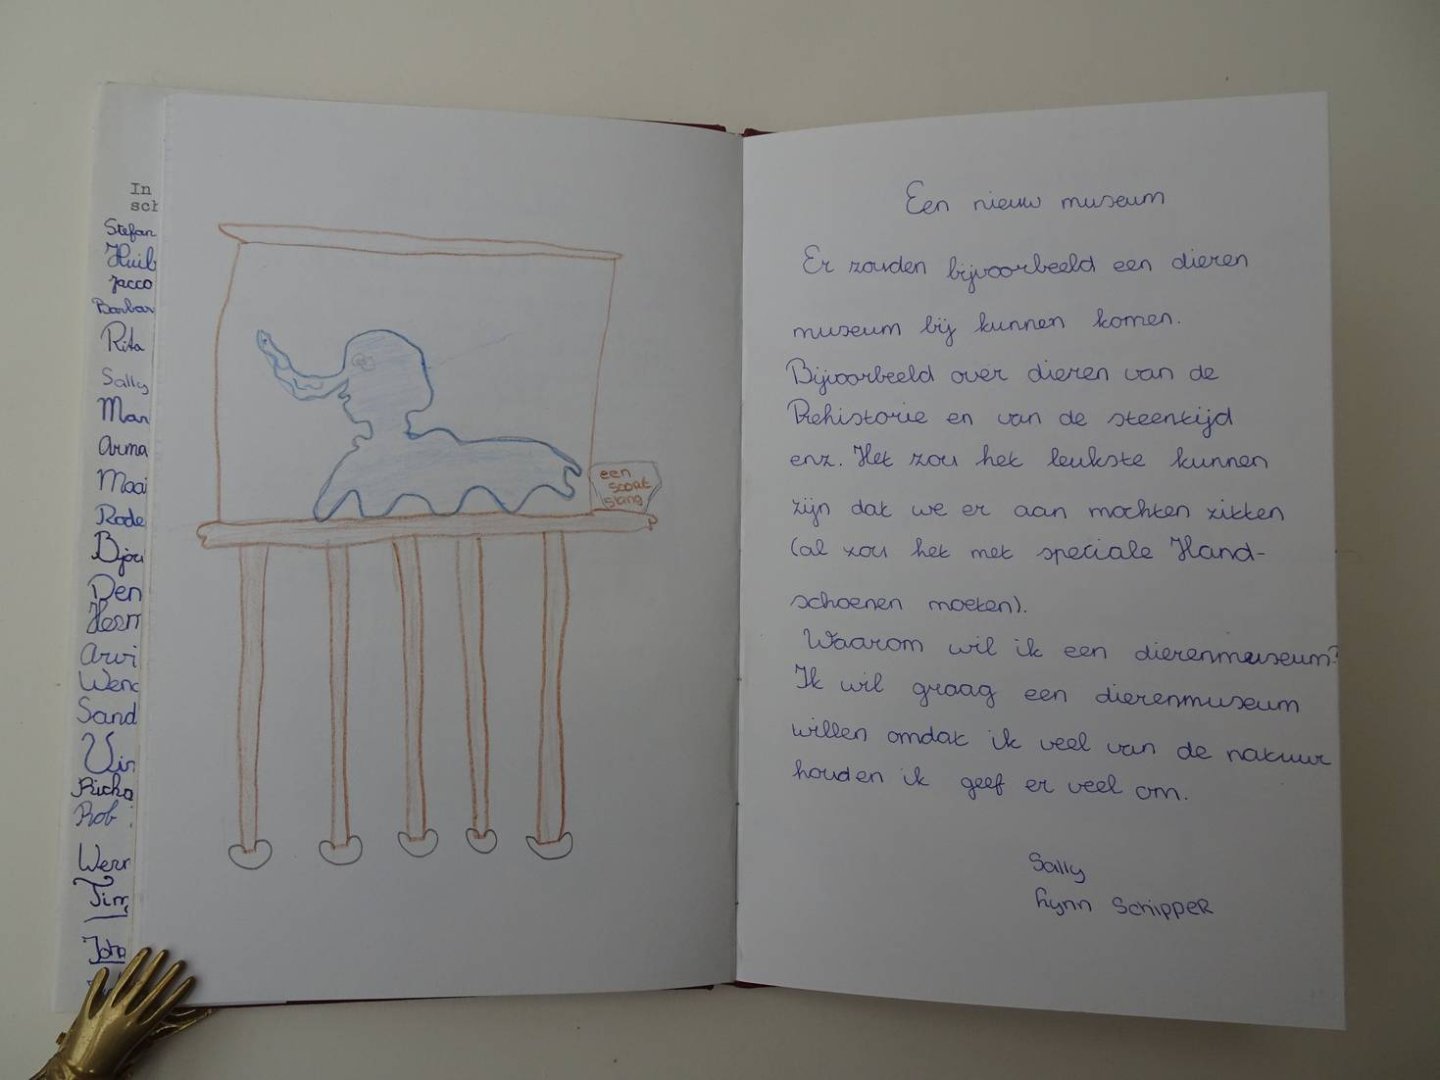 In
sch
Stefan
Huib
Jacco
Barbar
Rita
Sally
Mar
Arma
Maai
Rode
Bjor
Den
Herm
Arvi
Wend
Sand
Richa
Rob
Wern
Tim
Joha
een
soort
slang
Een nieuw museum
Er zouden bijvoorbeeld een dieren
museum bij kunnen komen.
Bijvoorbeeld over dieren van de
Prehistorie en van de steentijd
enz. Het zou het leukste kunnen
zijn dat we er aan mochten zitten
(al zou het met speciale Hand-
schoenen moeten).
Waarom wil ik een dierenmuseum?
Ik wil graag een dierenmuseum
willen omdat ik veel van de natuur
houden ik geef er veel om.
Sally
Lynn Schipper